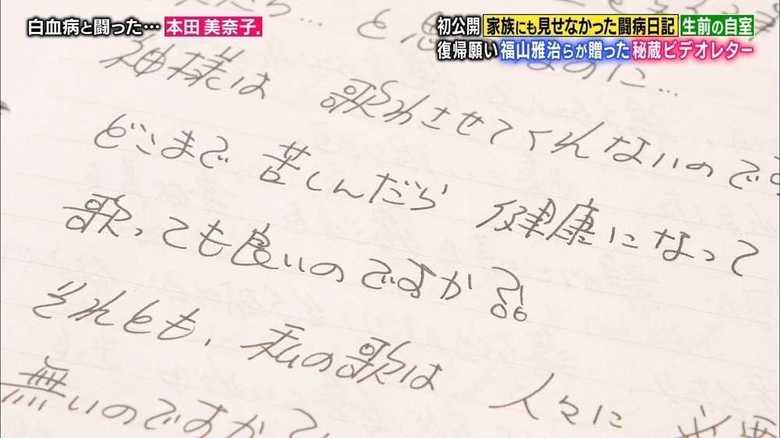 白血病と闘った… 本田 美奈子.
初公開 家族にも見せなかった闘病日記 生前の自室
復帰願い 福山雅治らが贈った 秘蔵ビデオレター
なのに…
神様は 歌わさせてくれないのです
どこまで 苦しんだら 健康になって
歌っても良いのですか?!
それとも、私の歌は 人々に 必要
無いのですか?